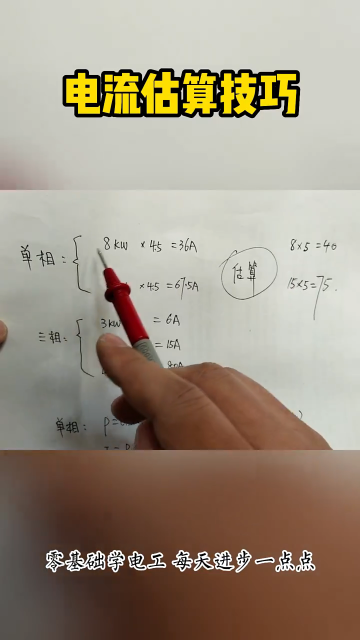 电流估算技巧
单相：
8kw × 4.5 = 36A
8×5=40
× 4.5 = 67.5A
估算
15×5=75.
三相：
3kw = 6A
= 15A
单相： P=
零基础学电工 每天进步一点点